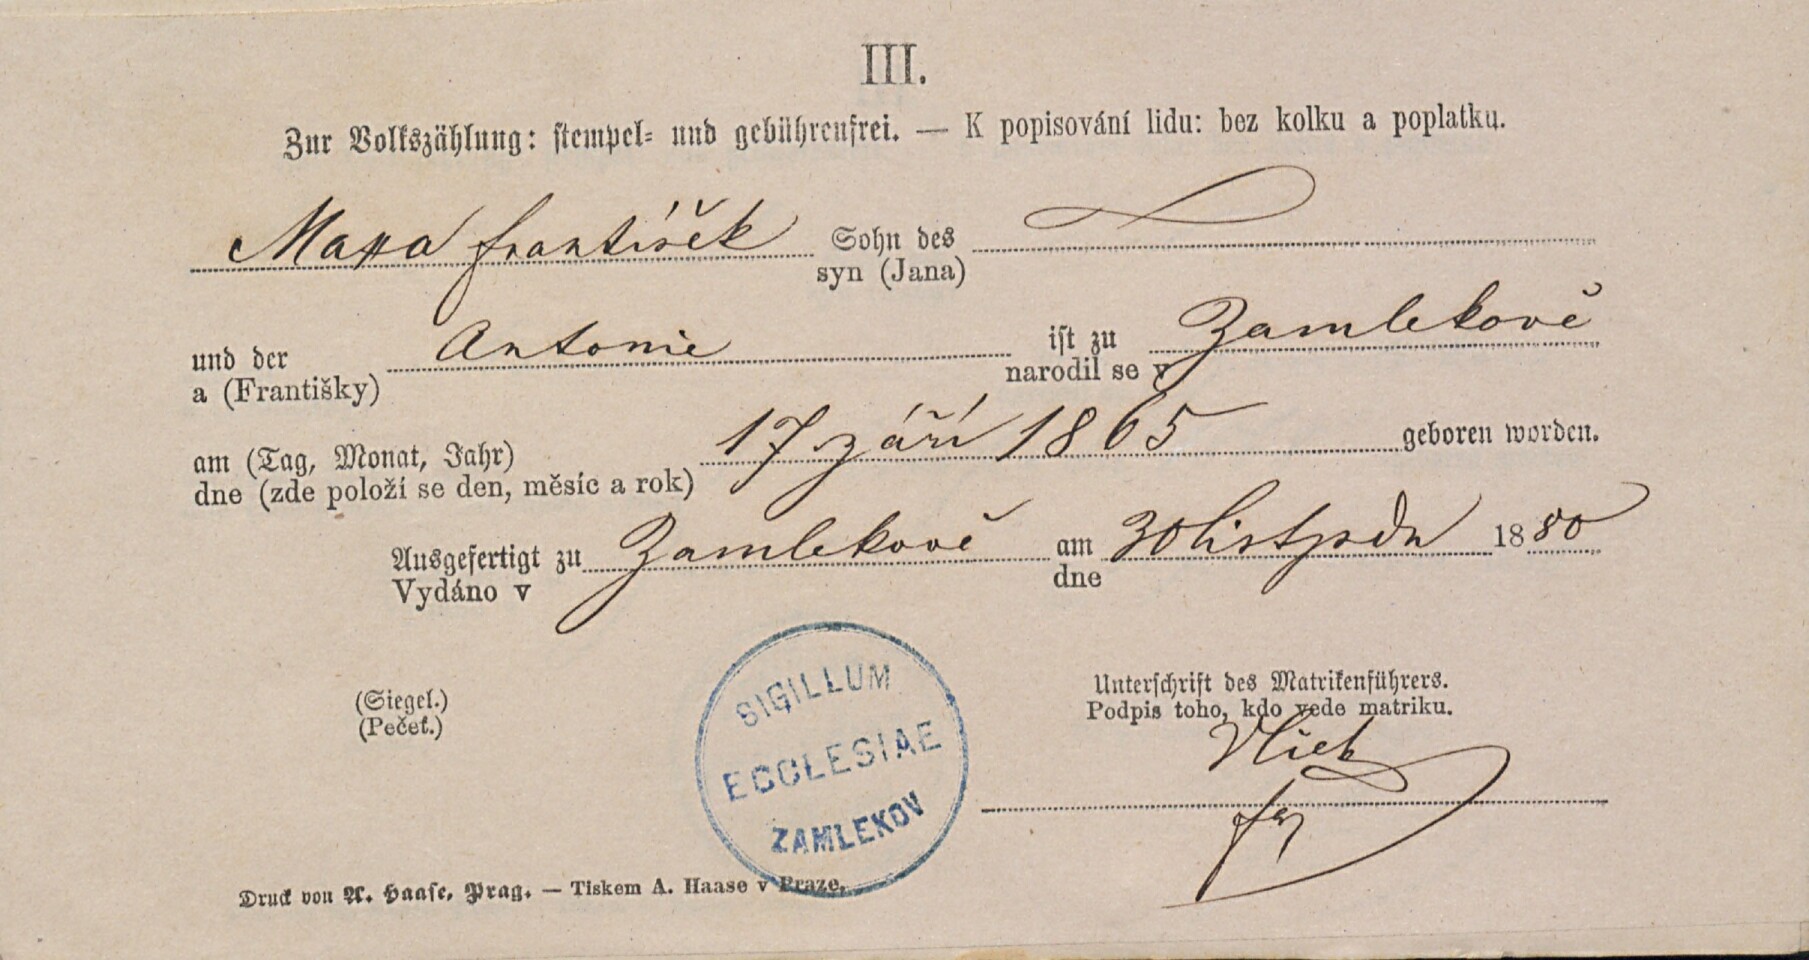 III.
Zur Volkszählung: stempel- und gebührenfrei. — K popisování lidu: bez kolku a poplatku.
František Sohn des
syn (Jana)
und der Antonie ist zu Zamlekově
a (Františky) narodil se v
am (Tag, Monat, Jahr) 17 září 1865 geboren worden.
dne (zde položí se den, měsíc a rok)
Ausgefertigt zu Zamlekově am 30 listopadu 1880
Vydáno v dne
(Siegel.)
(Pečeť.)
SIGILLUM
ECCLESIAE
ZAMLEKOV
Unterschrift des Matrikenführers.
Podpis toho, kdo vede matriku.
Druck von A. Haase, Prag. — Tiskem A. Haase v Praze.